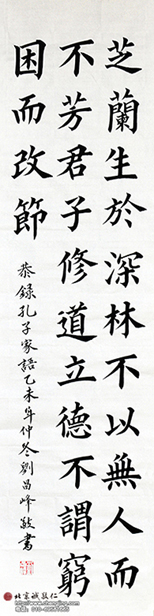 芝蘭生於深林不以無人而
不芳君子修道立德不謂窮
困而改節
恭錄孔子家語乙未年仲冬劉昌峰敬書